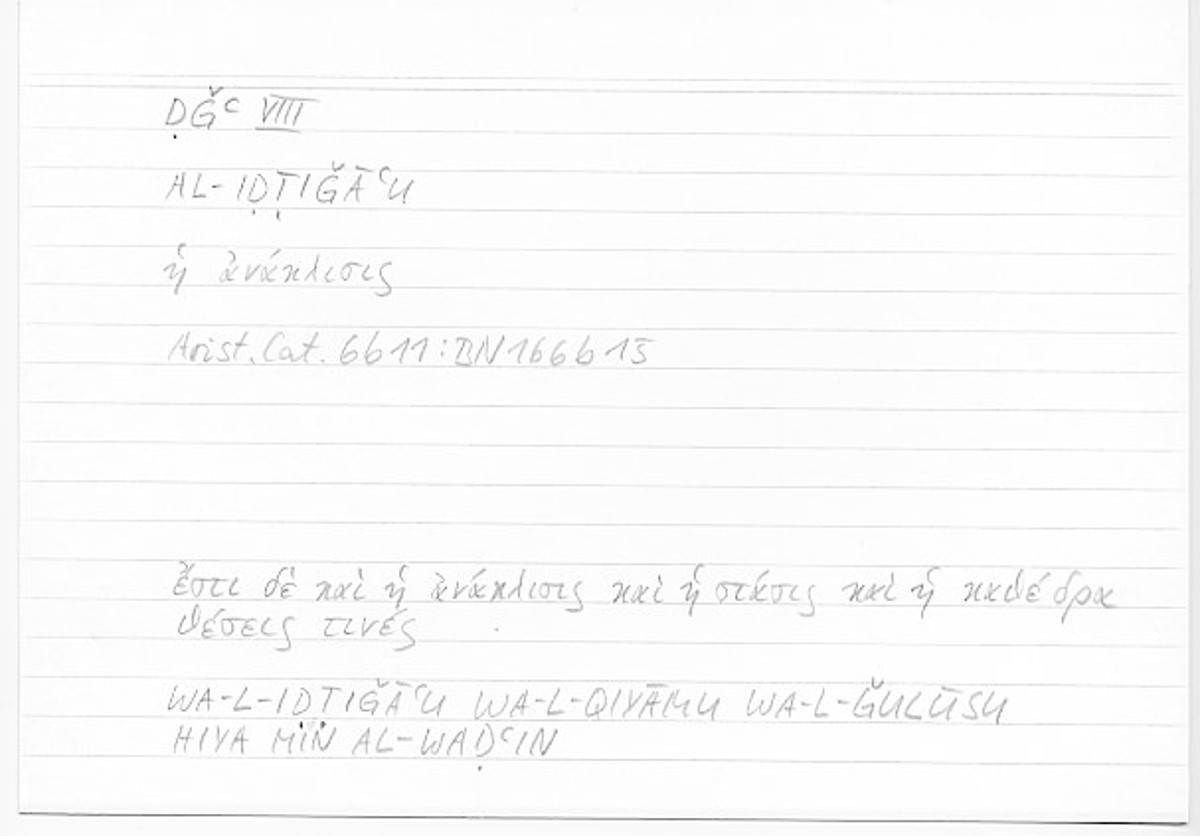 ḌǦʿ VIII
AL-IḌṬIǦĀʿU
ἡ ἀνάκλισις
Arist. Cat. 6b11: BN166b15
ἔστι δὲ καὶ ἡ ἀνάκλισις καὶ ἡ στάσις καὶ ἡ καθέδρα
θέσεις τινές
WA-L-IḌṬIǦĀʿU WA-L-QIYĀMU WA-L-ǦULŪSU
HIYA MIN AL-WAḌʿIN